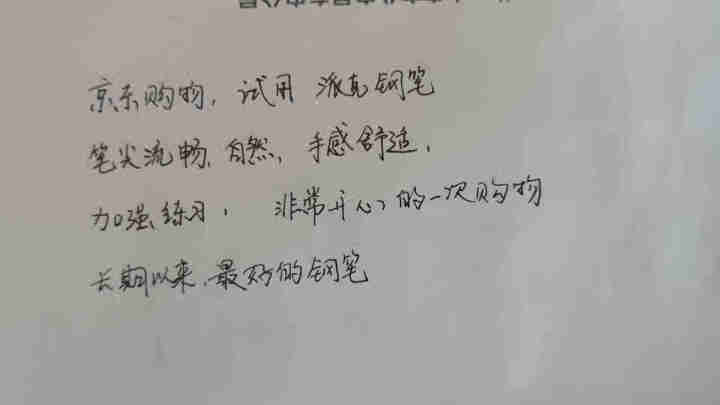 京东购物，试用 派克钢笔
笔尖流畅、自然，手感舒适，
加强练习， 非常开心的一次购物
长期以来、最好的钢笔